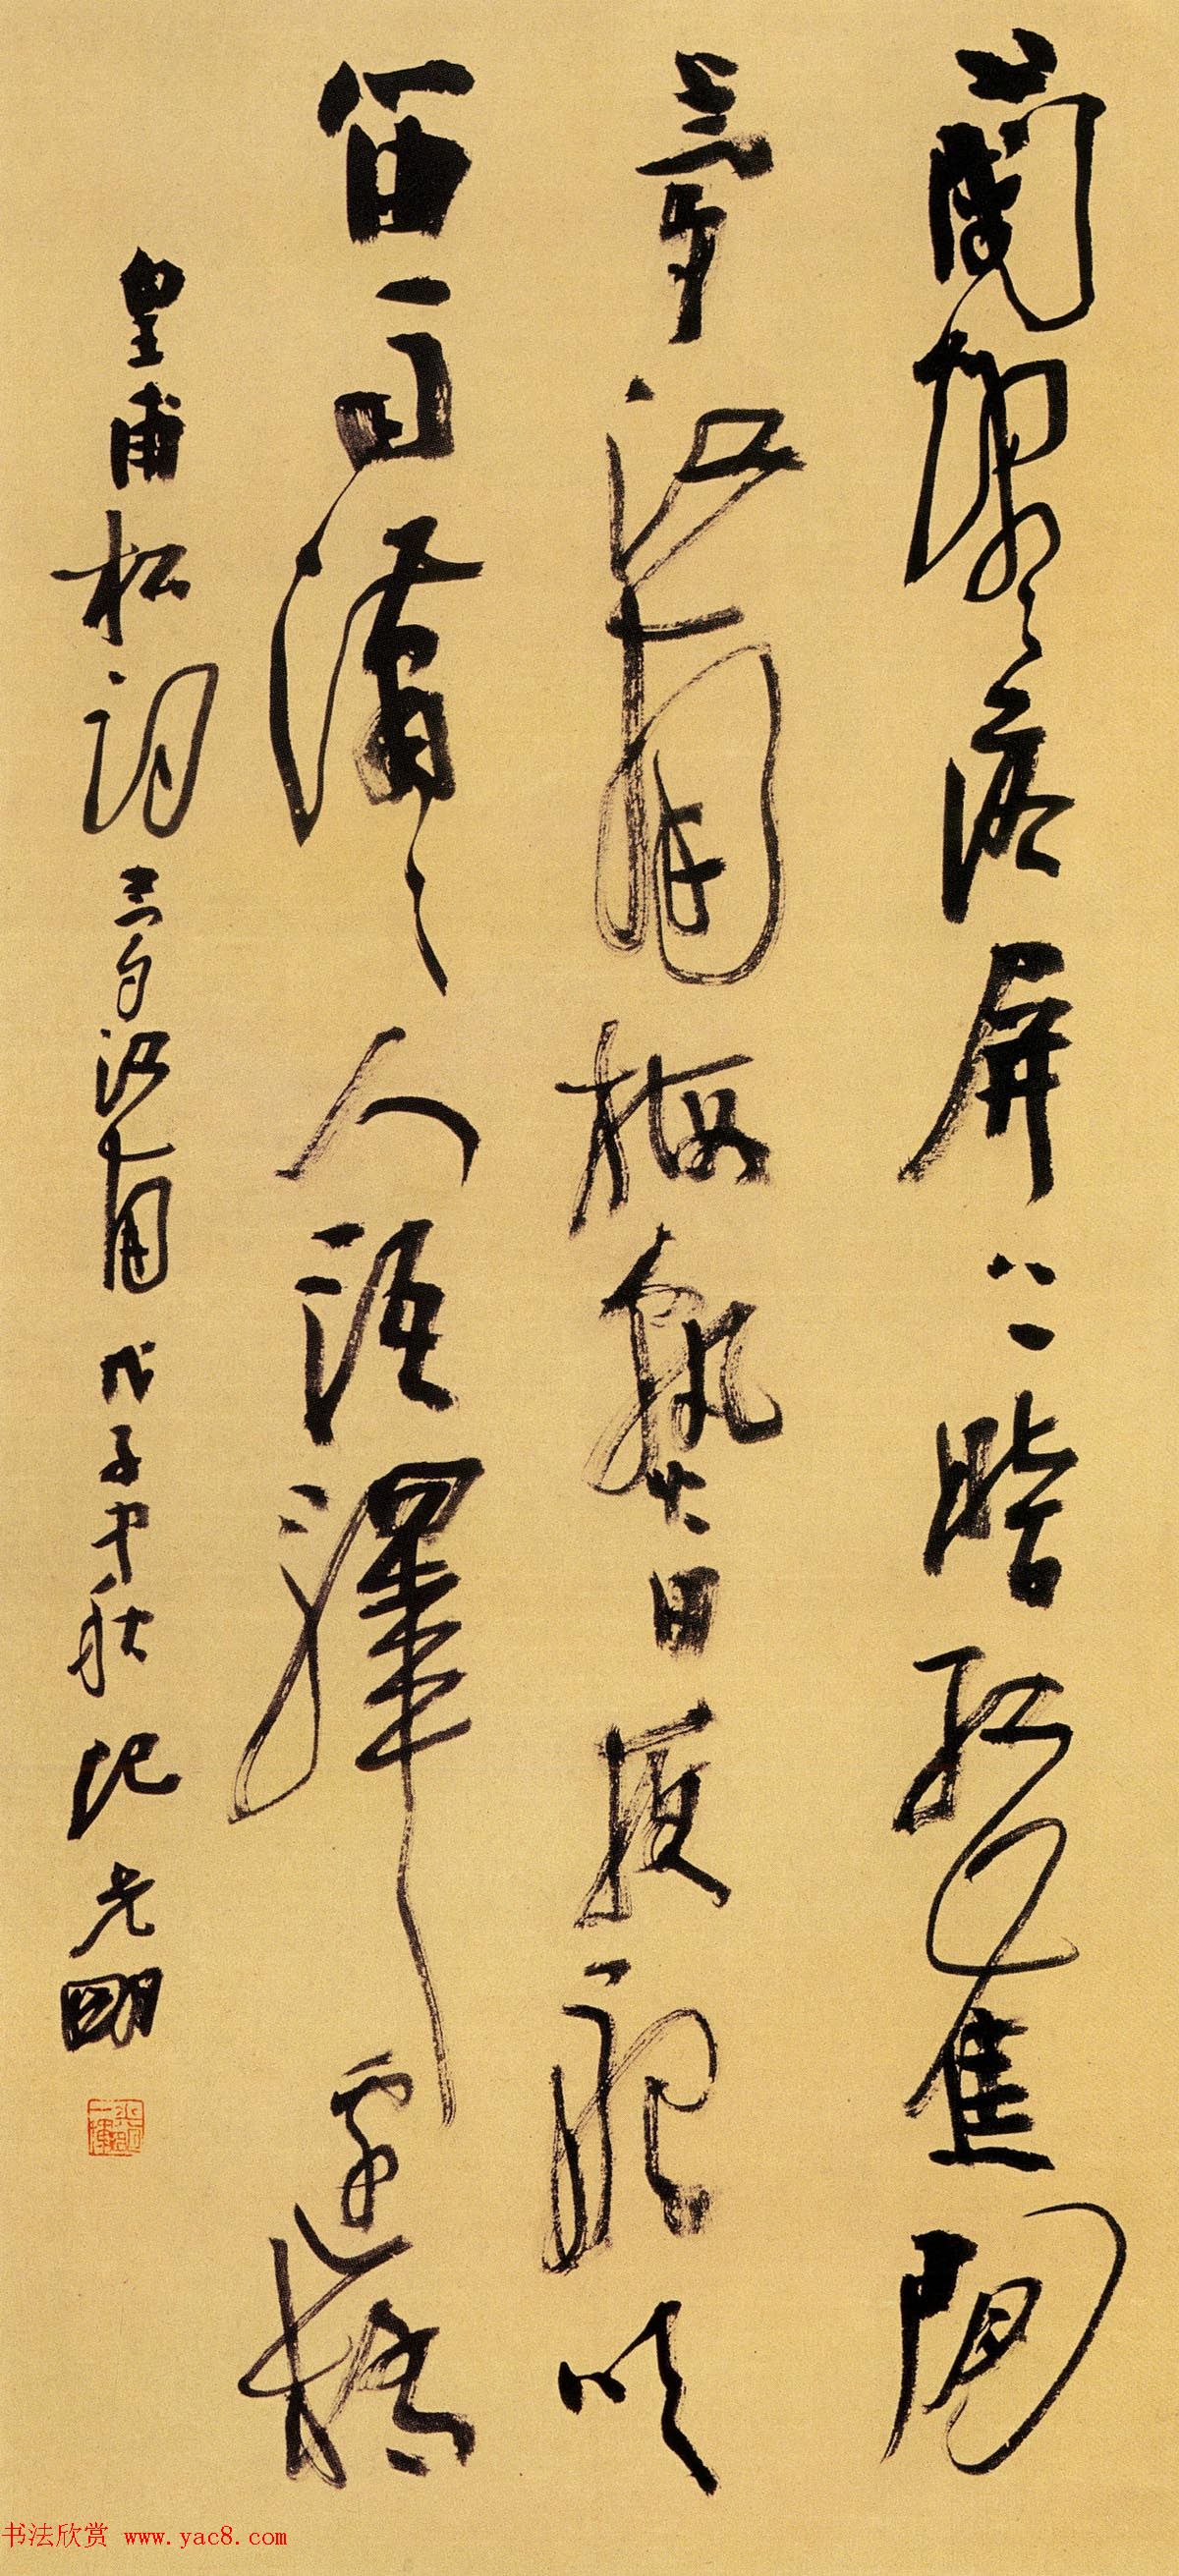 蘭燼落屏上暗紅蕉閒
夢江南梅熟日夜船吹
笛雨瀟々人語驛邊橋
皇甫松詞夢江南 戊子中秋 紀光明
书法欣赏 www.yac8.com